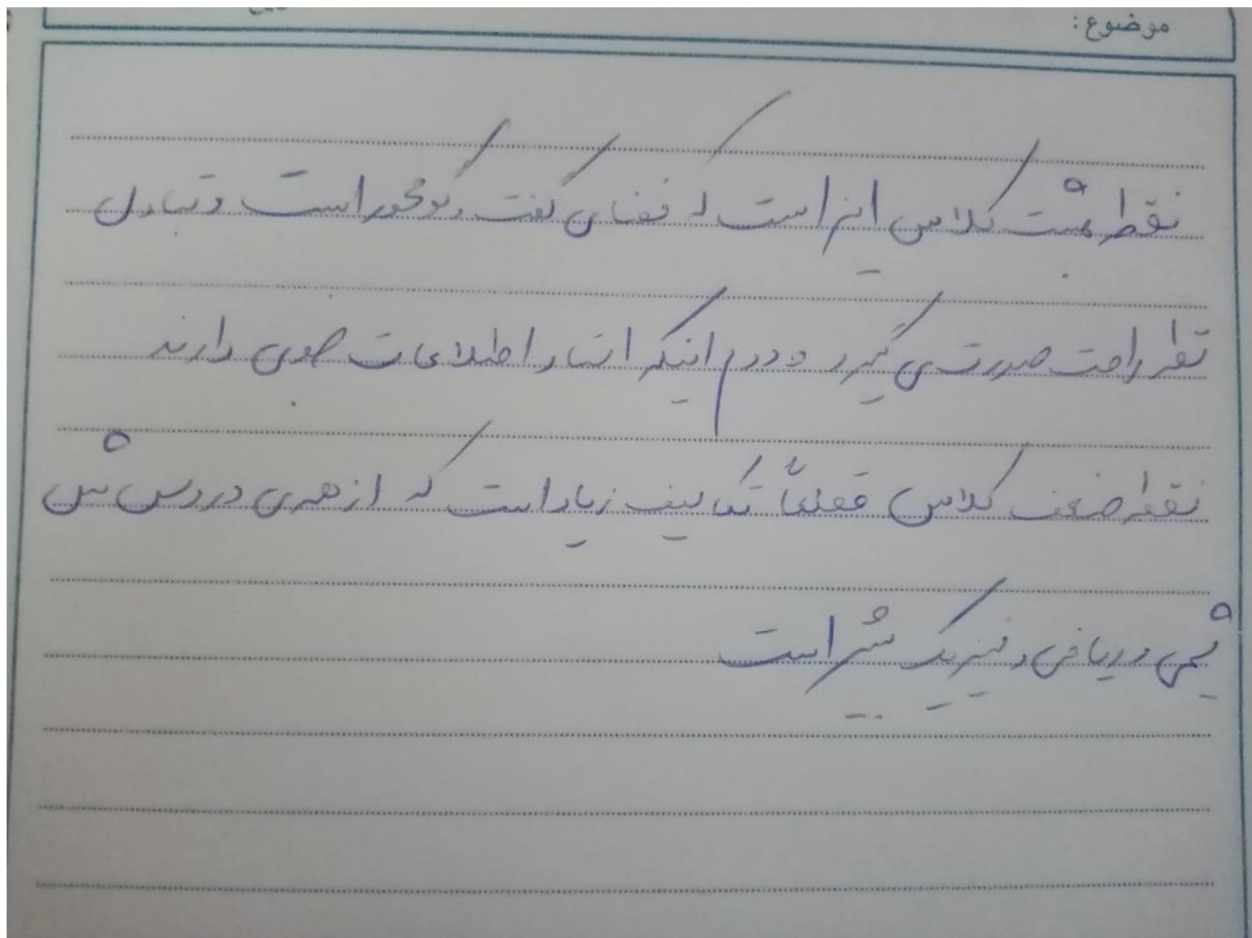 موضوع:
نقطه مثبت کلاس این است که فضای گفت و گو محور است و تبادل
نظر راحت صورت می گیرد و دوم اینکه استاد اطلاعات خوبی دارند
نقطه ضعف کلاس قطعاً تکالیف زیاد است که از همه ی دروس مثل
شیمی و ریاضی و فیزیک بیشتر است